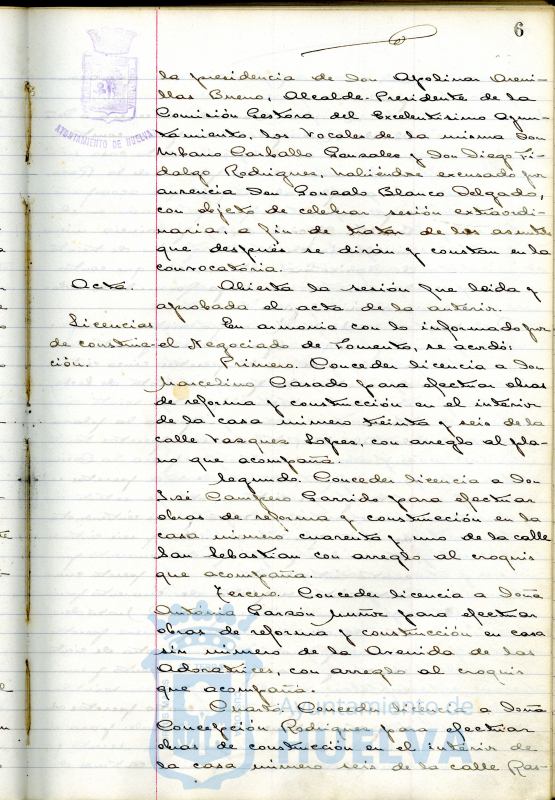 6
AYUNTAMIENTO DE HUELVA
la presidencia de Don Apolinar Areni-
llas Bueno, Alcalde-Presidente de la
Comisión Gestora del Excelentísimo Ayun-
tamiento, los Vocales de la misma Don
Urbano Carballo Gonzales y Don Diego Fi-
dalgo Rodrigues, habiendo excusado por
ausencia Don Gonzalo Blanco Delgado,
con objeto de celebrar sesión extraordi-
naria, a fin de tratar de los asuntos
que después se dirán y constan en la
convocatoria.
Acta. Abierta la sesión fue leida y
aprobada el acta de la anterior.
Licencias En armonia con lo informado por
de construc- el Negociado de Fomento, se acordó:
ción. Primero. Conceder licencia a Don
Marcelino Casado para efectuar obras
de reforma y construcción en el interior
de la casa número treinta y seis de la
calle Vasques Lopes, con arreglo al pla-
no que acompaña.
Segundo. Conceder licencia a Don
José Campero Garrido para efectuar
obras de reforma y construcción en la
casa número cuarenta y uno de la calle
San Sebastian con arreglo al croquis
que acompaña.
Tercero. Conceder licencia a Doña
Antonia Garzón Muñoz para efectuar
obras de reforma y construcción en casa
sin número de la Avenida de las
Adoratrices, con arreglo al croquis
que acompaña.
Cuarto. Conceder licencia a Doña
Concepción Rodrigues para efectuar
obras de construcción en el interior de
la casa número seis de la calle Ras-
Ayuntamiento de
HUELVA